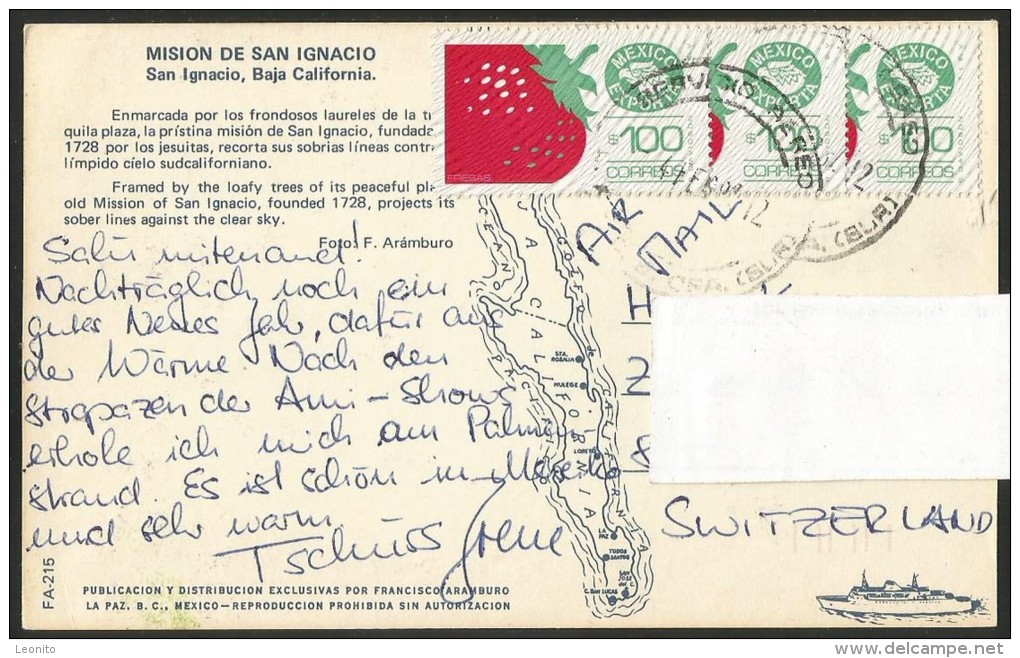 MISION DE SAN IGNACIO
San Ignacio, Baja California.
Enmarcada por los frondosos laureles de la
quila plaza, la prístina misión de San Ignacio, fundada
1728 por los jesuitas, recorta sus sobrias líneas contr
límpido cíelo sudcaliforniano.
Framed by the loafy trees of its peaceful
old Mission of San Ignacio, founded 1728, projects its
sober lines against the clear sky.
Foto: F. Arámburo
Salü mitenand!
Nachträglich noch ein
gutes Neues Jahr, dafür aus
der Wärme. Nach den
Strapazen der Ami-Shows
erhole ich mich am Palmen-
strand. Es ist schön in Mexeko
und sehr warm
Tschüss
FA-215
PUBLICACION Y DISTRIBUCION EXCLUSIVAS POR FRANCISCO ARAMBURO
LA PAZ, B. C., MEXICO—REPRODUCCION PROHIBIDA SIN AUTORIZACION
FRESAS
MEXICO
EXPORTA
$100
CORREOS
MEXICO
EXPORTA
$100
CORREOS
MEXICO
EXPORTA
$100
CORREOS
SERVICIO AEREO
12
12
(SUR)
(SUR)
AIR
MAIL
OCEANO
GOLFO de CALIFORNIA
BAJA CALIFORNIA
STA. ROSALIA
MULEGE
LORETO
LA PAZ
TODOS SANTOS
SAN JOSE del C.
C. SAN LUCAS
H
Z
8
SWITZERLAND
www.delcampe.net
Leonito